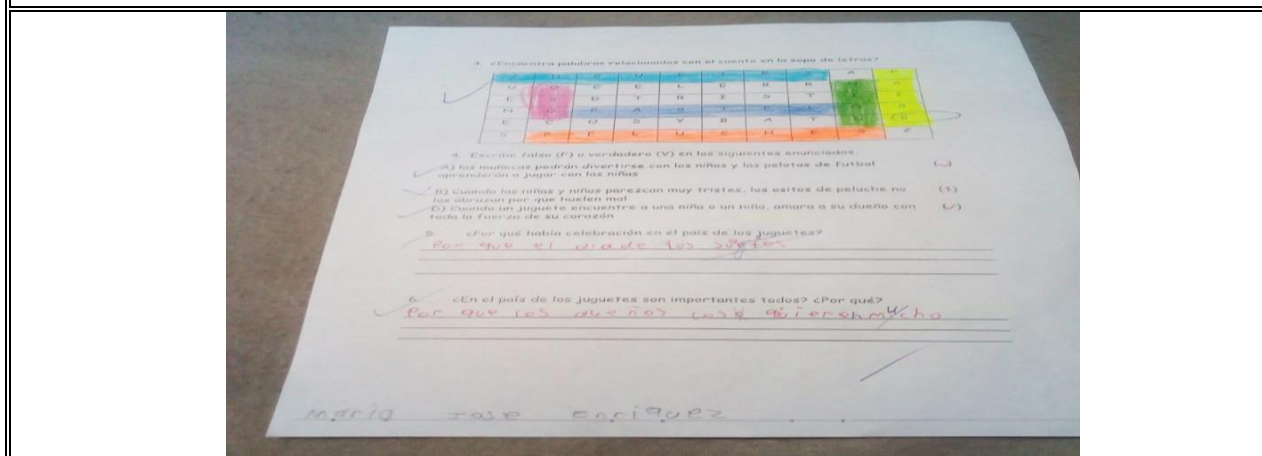 3. ¿Encuentra palabras relacionadas con el cuento en la sopa de letras?
J U G U E T E S A P
U O C E L E B R
E S D T R I S T
N O P A S T E L
E L O S Y B A T N
S P E L U C H E S Z
4. Escribe falso (F) o verdadero (V) en los siguientes enunciados.
A) las muñecas podrán divertirse con los niños y las pelotas de futbol
aprenderán a jugar con las niñas
B) Cuando las niñas y niños parezcan muy tristes, los ositos de peluche no
los abrazan por que huelen mal
D) Cuando un juguete encuentre a una niña o un niño, amara a su dueño con
toda la fuerza de su corazón
5. ¿Por qué había celebración en el país de los juguetes?
Por que el dia de los
6. ¿En el país de los juguetes son importantes todos? ¿Por qué?
Por que los dueños quieren mucho
Maria Jose Enriquez